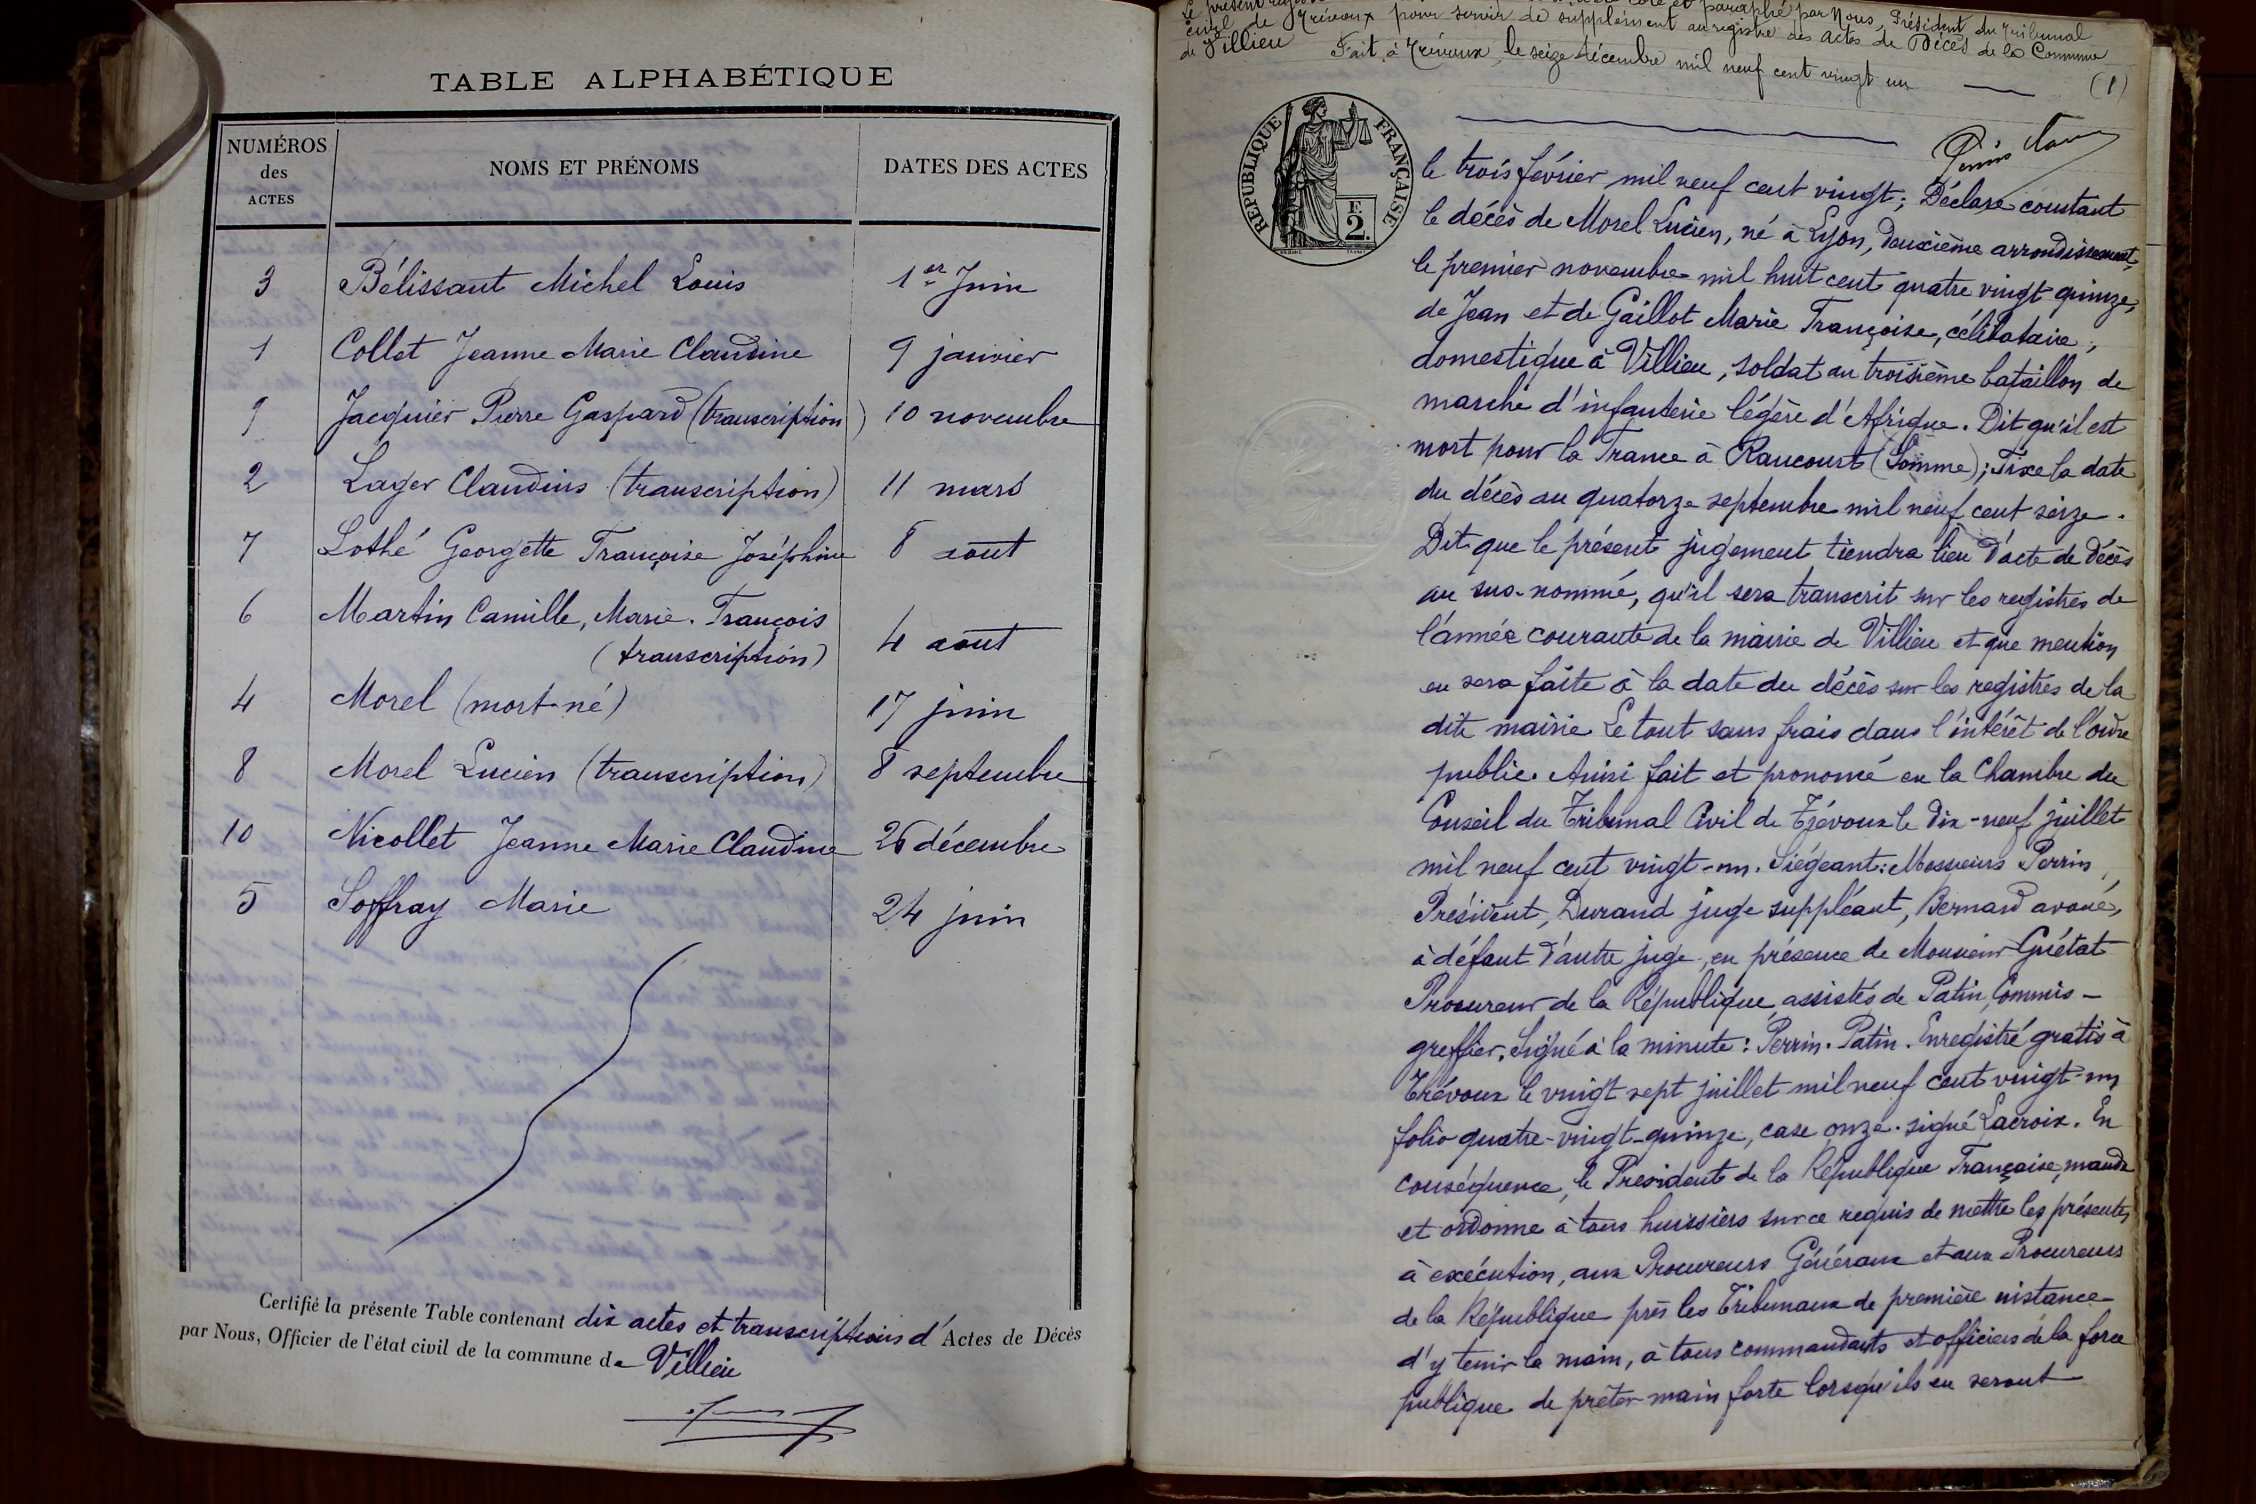 TABLE ALPHABÉTIQUE
NUMÉROS des ACTES NOMS ET PRÉNOMS DATES DES ACTES
3 Bélissant Michel Louis 1er Juin
1 Collet Jeanne Marie Claudine 9 janvier
9 Jacquier Pierre Gaspard (transcription) 10 novembre
2 Lager Claudius (transcription) 11 mars
7 Lothé Georgette Françoise Joséphine 8 août
6 Martin Camille, Marie. François
(transcription) 4 août
4 Morel (mort-né) 17 juin
8 Morel Lucien (transcription) 8 septembre
10 Nicollet Jeanne Marie Claudine 26 décembre
5 Soffray Marie 24 juin
Certifié la présente Table contenant dix actes et transcriptions d'Actes de Décès
par Nous, Officier de l'état civil de la commune de Villieu
Le présent coté et paraphé par Nous, Président du Tribunal
civil de Trévoux pour servir de supplément au registre des actes de Décès de la Commune
de Villieu Fait à Trévoux, le seize décembre mil neuf cent vingt un (1)
RÉPUBLIQUE FRANÇAISE
F. 2.
le trois février mil neuf cent vingt; Déclare constant
le décès de Morel Lucien, né à Lyon, deuxième arrondissement,
le premier novembre mil huit cent quatre vingt quinze,
de Jean et de Gaillot Marie Françoise, célibataire,
domestique à Villieu, soldat au troisième bataillon de
marche d'infanterie légère d'Afrique. Dit qu'il est
mort pour la France à Rancourt (Somme); Fixe la date
du décès au quatorze septembre mil neuf cent seize.
Dit que le présent jugement tiendra lieu d'acte de décès
au sus-nommé, qu'il sera transcrit sur les registres de
l'année courante de la mairie de Villieu et que mention
en sera faite à la date du décès sur les registres de la
dite mairie Le tout sans frais dans l'intérêt de l'ordre
public. Ainsi fait et prononcé en la Chambre du
Conseil du Tribunal Civil de Trévoux le dix-neuf juillet
mil neuf cent vingt-un. Siégeant: Messieurs Perrin,
Président, Durand juge suppléant, Bernard avoué,
à défaut d'autre juge, en présence de Monsieur Guétat
Procureur de la République, assistés de Patin, Commis-
greffier. Signé à la minute: Perrin. Patin. Enregistré gratis à
Trévoux le vingt sept juillet mil neuf cent vingt-un
folio quatre-vingt-quinze, case onze. signé Lacroix. En
conséquence, le Président de la République Française, mande
et ordonne à tous huissiers sur ce requis de mettre les présentes
à exécution, aux Procureurs Généraux et aux Procureurs
de la République près les Tribunaux de première instance
d'y tenir la main, à tous commandants et officiers de la force
publique de prêter main forte lorsqu'ils en seront